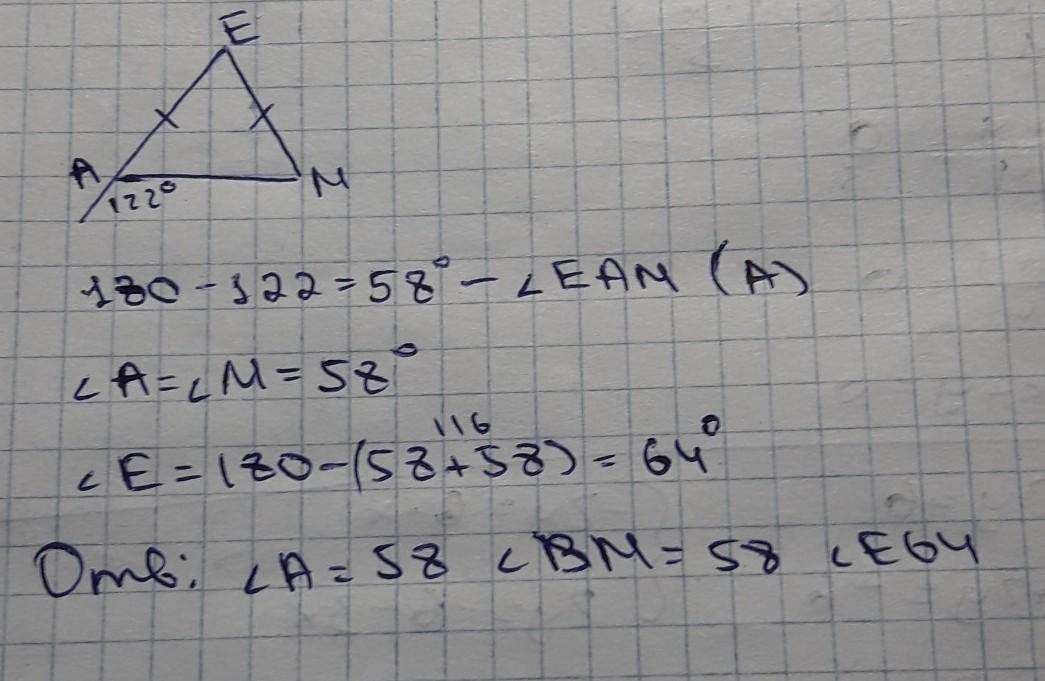 E
A
M
122°
180 - 122 = 58° - ∠EAM (A)
∠A = ∠M = 58°
116
∠E = 180 - (58 + 58) = 64°
Отв: ∠A = 58 ∠BM = 58 ∠E64